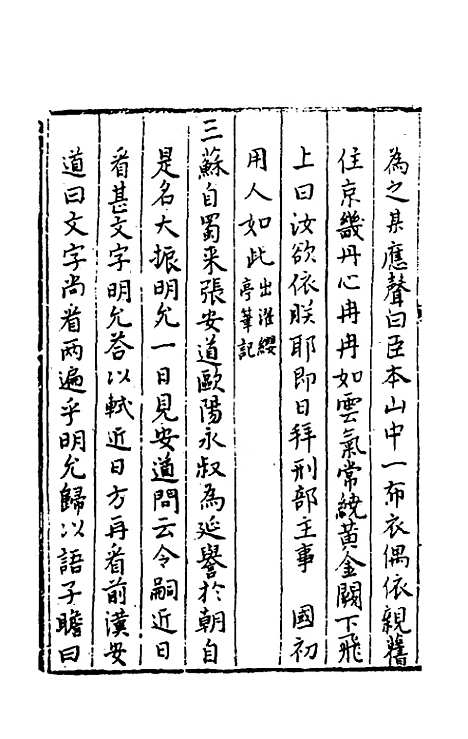 為之某應聲曰臣本山中一布衣偶依親舊
住京畿丹心冉冉如雲氣常繞黃金闕下飛
上曰汝欲依朕耶即日拜刑部主事　國初
用人如此出濯纓亭筆記
三蘇自蜀来張安道歐陽永叔為延譽於朝自
是名大振明允一日見安道問云令嗣近日
看甚文字明允荅以軾近日方再看前漢安
道曰文字尚看兩遍乎明允歸以語子瞻曰